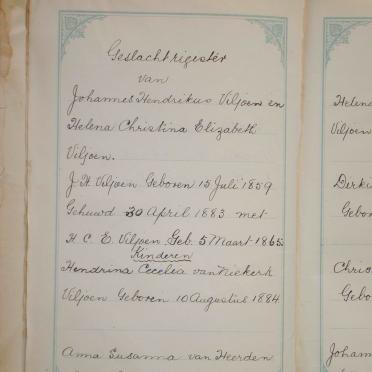 Geslachtrigestér
van
Johannes Hendrikus Viljoen en
Helena Christina Elizabeth
Viljoen.
J. H. Viljoen Geboren 15 Juli 1859
Gehuwd 30 April 1883 met
H. C. E. Viljoen Geb. 5 Maart 1865.
Kinderen
Hendrina Cecelia van Niekerk
Viljoen Geboren 10 Augustus 1884.
Anna Susanna van Heerden
Helena
Viljoen
Dirki
Gebor
Chris
Gebo
Johann